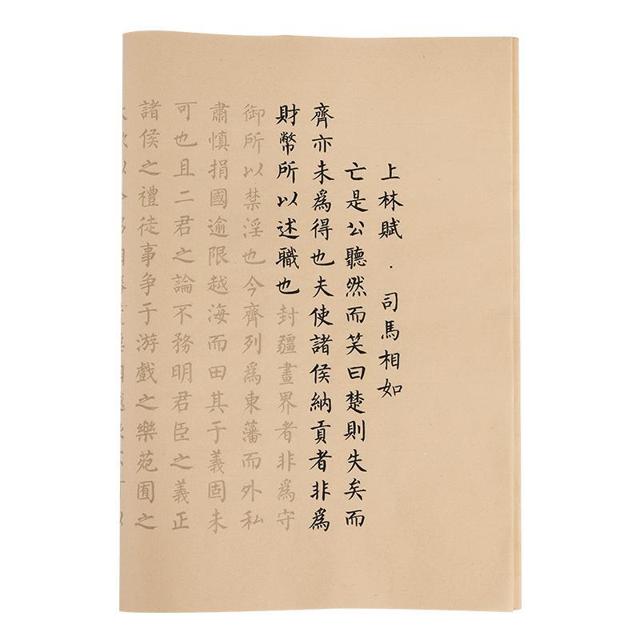 上林賦．司馬相如
亡是公聽然而笑曰楚則失矣而
齊亦未為得也夫使諸侯納貢者非為
財幣所以述職也封疆畫界者非為守
御所以禁淫也今齊列為東藩而外私
肅慎捐國逾限越海而田其于義固未
可也且二君之論不務明君臣之義正
諸侯之禮徒事爭于游戲之樂苑囿之